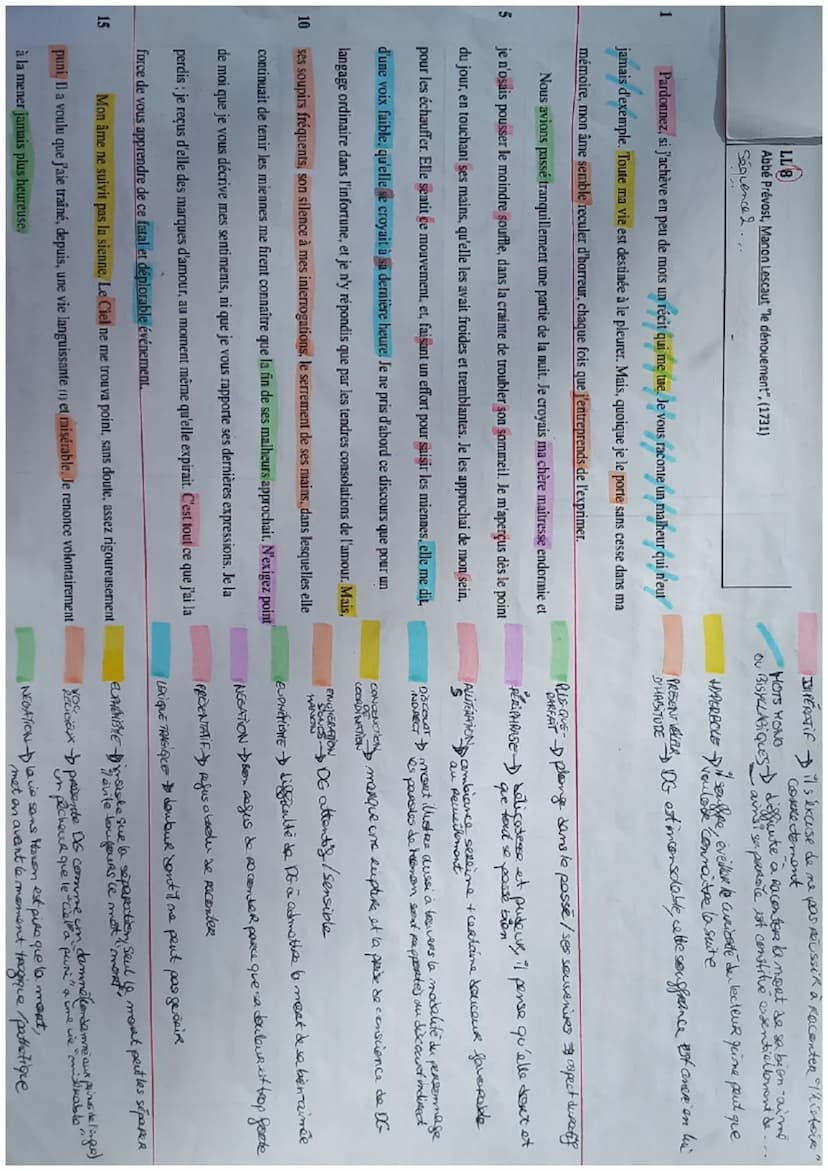 LL 8
Abbé Prévost, Manon Lescaut "le dénouement", (1731)
Séquence 2...
1
Pardonnez, si j'achève en peu de mots un récit qui me tue. Je vous raconte un malheur qui n'eut
jamais d'exemple. Toute ma vie est destinée à le pleurer. Mais, quoique je le porte sans cesse dans ma
mémoire, mon âme semble reculer d'horreur, chaque fois que j'entreprends de l'exprimer.
Nous avions passé tranquillement une partie de la nuit. Je croyais ma chère maîtresse endormie et
5
je n'osais pousser le moindre souffle, dans la crainte de troubler son sommeil. Je m'aperçus dès le point
du jour, en touchant ses mains, qu'elle les avait froides et tremblantes. Je les approchai de mon sein,
pour les échauffer. Elle sentit ce mouvement, et, faisant un effort pour saisir les miennes, elle me dit,
d'une voix faible, qu'elle se croyait à sa dernière heure. Je ne pris d'abord ce discours que pour un
langage ordinaire dans l'infortune, et je n'y répondis que par les tendres consolations de l'amour. Mais,
10
ses soupirs fréquents, son silence à mes interrogations, le serrement de ses mains, dans lesquelles elle
continuait de tenir les miennes me firent connaître que la fin de ses malheurs approchait. N'exigez point
de moi que je vous décrive mes sentiments, ni que je vous rapporte ses dernières expressions. Je la
perdis ; je reçus d'elle des marques d'amour, au moment même qu'elle expirait. C'est tout ce que j'ai la
force de vous apprendre de ce fatal et déplorable événement.
15
Mon âme ne suivit pas la sienne. Le Ciel ne me trouva point, sans doute, assez rigoureusement
puni. Il a voulu que j'aie traîné, depuis, une vie languissante (1) et misérable. Je renonce volontairement
à la mener jamais plus heureuse.
IMPÉRATIF → il s'excuse de ne pas réussir à raconter "l'histoire"
correctement
MOTS MONO
OU BISYLLABIQUES → difficulté à raconter la mort de sa bien-aimé
ainsi sa parole est constitué essentiellement de ...
HYPERBOLE → il souffre, éveille la curiosité du lecteur qui ne peut que
vouloir connaître la suite
PRÉSENT
D'HABITUDE → DG est inconsolable, cette souffrance est ancré en lui
PLUS-QUE-
PARFAIT → plonge dans le passé / ses souvenirs
PÉRIPHRASE → délicatesse et pudeur, il pense qu'elle dort et
que tout se passe bien
ALLITÉRATION → ambiance sereine + certaine douceur favorable
S au recueillement
DISCOURT
INDIRECT → mort illustrée aussi à travers la modalité du personnage
les paroles de Manon sont rapportés au discourt indirect
CONJONCTION
DE
COORDINATION → marque une rupture et la prise de conscience de DG
ÉNUMÉRATION
→ DG attentif / sensible
EUPHÉMISME → difficulté de DG à admettre la mort de sa bien-aimée
NÉGATION → son refus de raconter parce que sa douleur est trop forte
PRÉSENTATIF → refus absolu de raconter
LEXIQUE TRAGIQUE → douleur dont il ne peut pas guérir
EUPHÉMISME → insiste que la séparation, seul la mort peut les séparer
il évite toujours le mot "mort"
VOC
RELIGIEUX → présente DG comme un damné (condamné aux peines de l'enfer)
un pécheur que le "ciel" a "puni" à une vie "misérable"
NÉGATION → la vie sans Manon est pire que la mort,
met en avant le moment tragique / pathétique